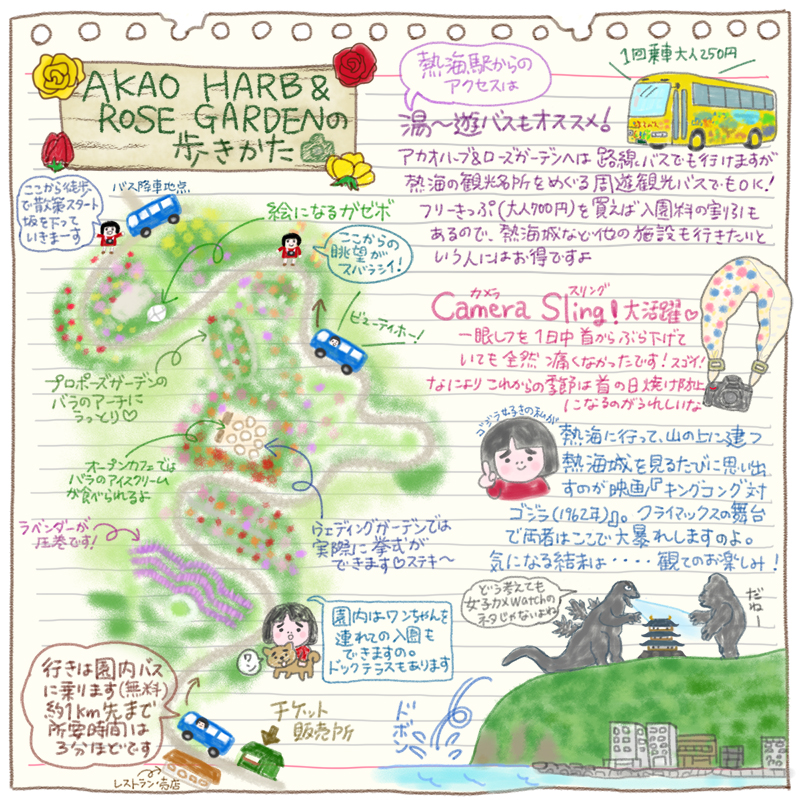 AKAO HARB &
ROSE GARDENの
歩きかた
熱海駅からの
アクセスは
1回乗車大人250円
湯〜遊バスもオススメ!
アカオハーブ&ローズガーデンへは 路線バスでも行けますが
熱海の観光名所をめぐる周遊観光バスでもOK!
フリーきっぷ(大人700円)を買えば入園料の割引も
あるので、熱海城など他の施設も行きたいと
いう人にはお得ですよ
ここから徒歩
で散策スタート
坂を下って
いきまーす
バス降車地点
絵になるガゼボ
ここからの
眺望が
スバラシイ!
ビューティホー!
カメラ スリング
Camera Sling! 大活躍♡
一眼レフを1日中首からぶら下げて
いても全然痛くなかったです!スゴイ!
なにより これからの季節は首の日焼け防止
になるのがうれしいな
プロポーズガーデンの
バラのアーチに
うっとり♡
オープンカフェでは
バラのアイスクリーム
が食べられるよ
ラベンダーが
圧巻です!
ウェディングガーデンでは
実際に挙式が
できます♡ステキ〜
ゴジラ好きの私が
熱海に行って、山の上に建つ
熱海城を見るたびに思い出
すのが映画『キングコング対
ゴジラ(1962年)』。クライマックスの舞台
で両者はここで大暴れしますのよ。
気になる結末は・・・・観てのお楽しみ!
どう考えても
女子カメWatchの
ネタじゃないよね
だねー
園内はワンちゃんを
連れての入園も
できますの。
ドックテラスもあります
ワン
行きは園内バス
に乗ります(無料)
約1km先まで
所要時間は
3分ほどです
チケット
販売所
レストラン・売店
ドボン